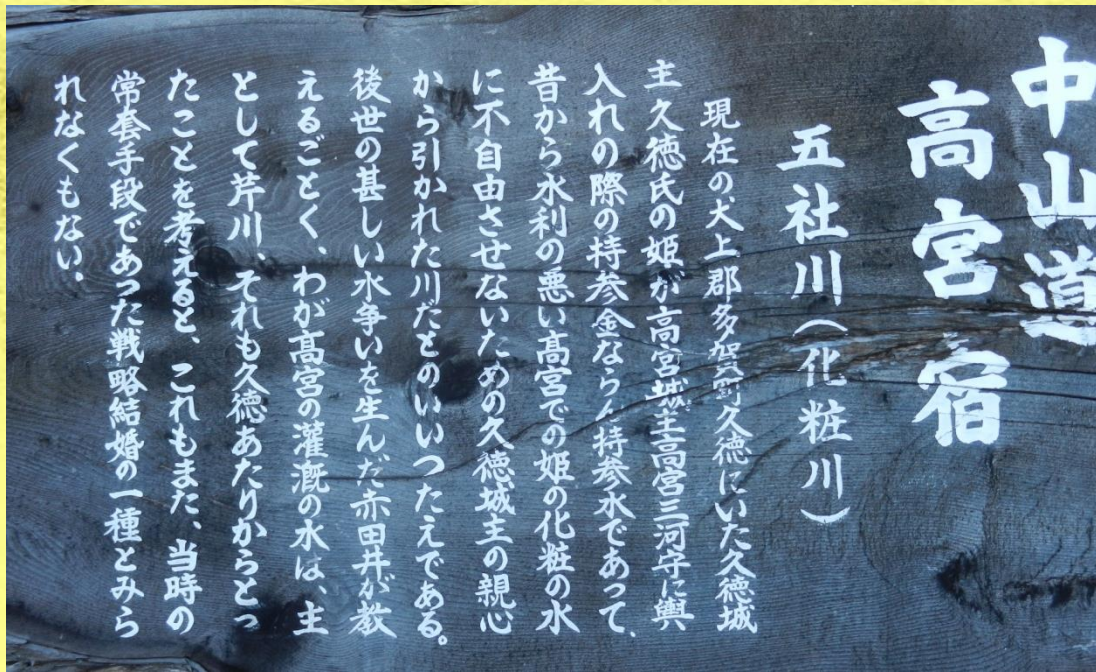 中山道
高宮宿
五社川（化粧川）
現在の犬上郡多賀町久徳にいた久徳城
主久徳氏の姫が高宮城主高宮三河守に輿
入れの際の持参金ならん持参水であって、
昔から水利の悪い高宮での姫の化粧の水
に不自由させないための久徳城主の親心
から引かれた川だとのいいつたえである。
後世の甚しい水争いを生んだ赤田井が教
えるごとく、わが高宮の灌漑の水は、主
として芹川、それも久徳あたりからとっ
たことを考えると、これもまた、当時の
常套手段であった戦略結婚の一種とみら
れなくもない。